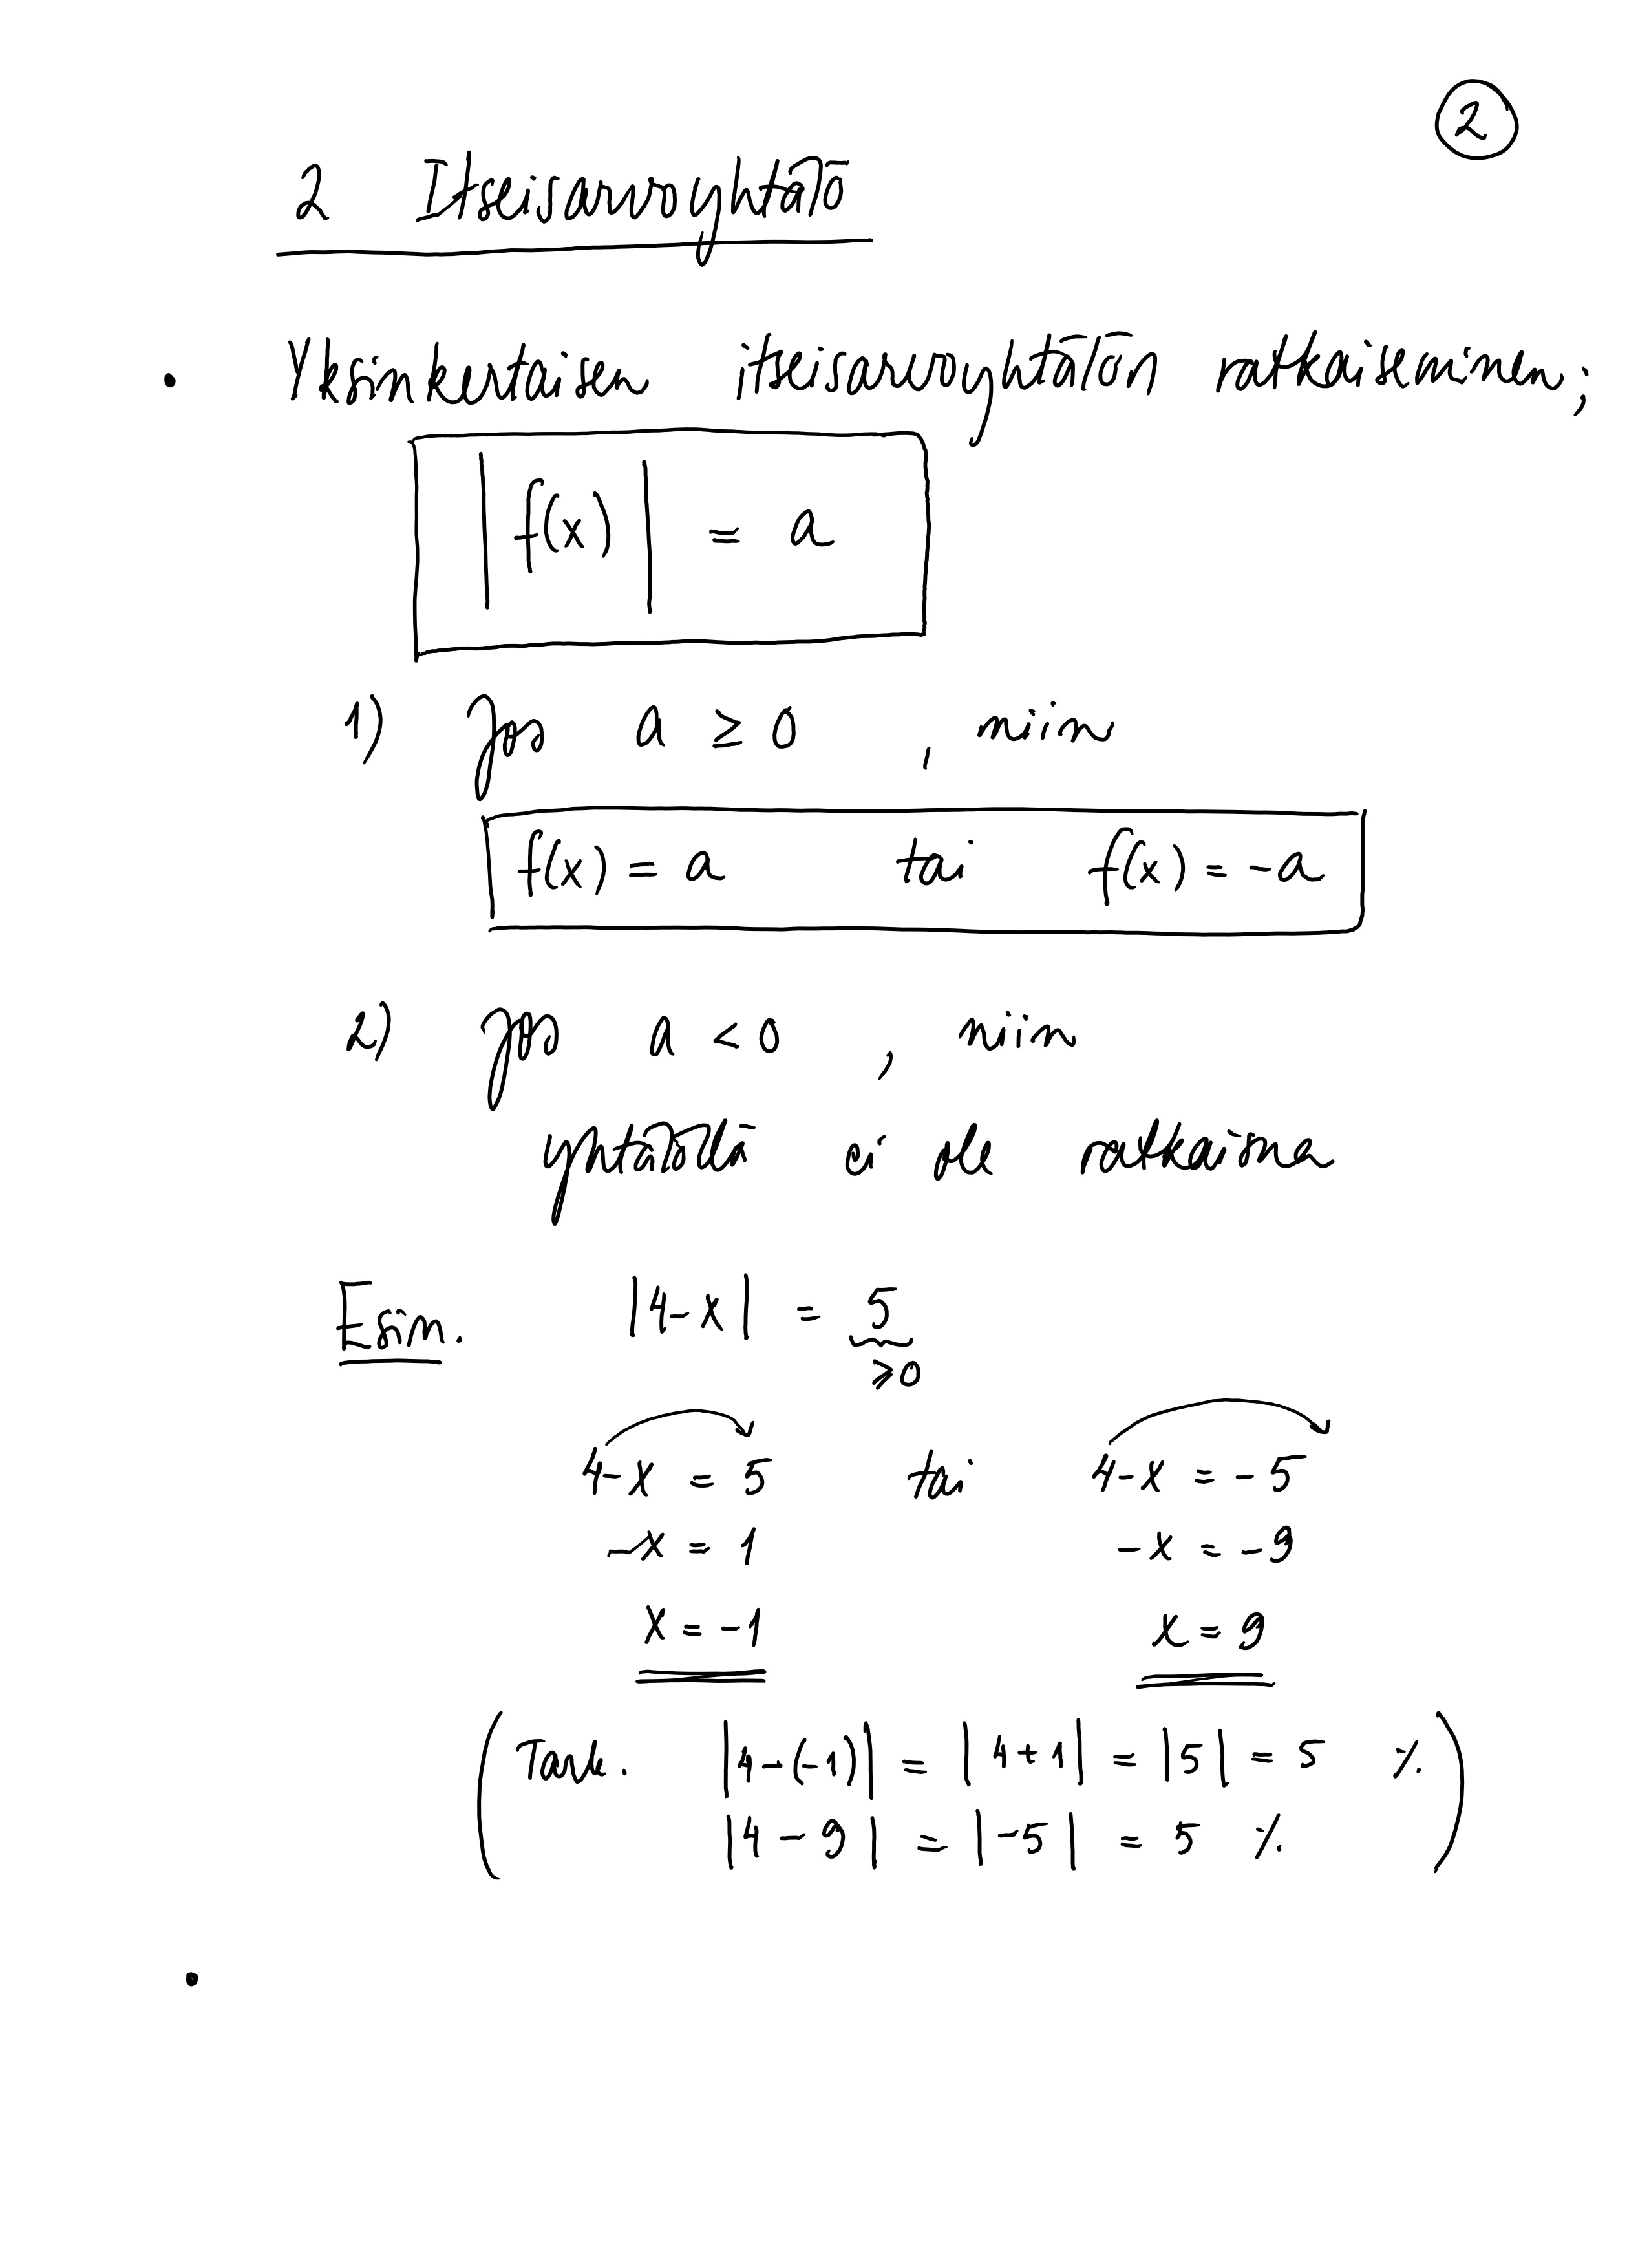 2
2 Itseisarvoyhtälö
• Yksinkertaisen itseisarvoyhtälön ratkaiseminen;
|f(x)| = a
1) Jos a ≥ 0 , niin
f(x) = a tai f(x) = -a
2) Jos a < 0 , niin
yhtälöllä ei ole ratkaisua
Esim. |4-x| = 5
≥0
4-x = 5 tai 4-x = -5
-x = 1 -x = -9
x = -1 x = 9
(Tark. |4-(-1)| = |4+1| = |5| = 5 ٪.
|4-9| = |-5| = 5 ٪.)
•